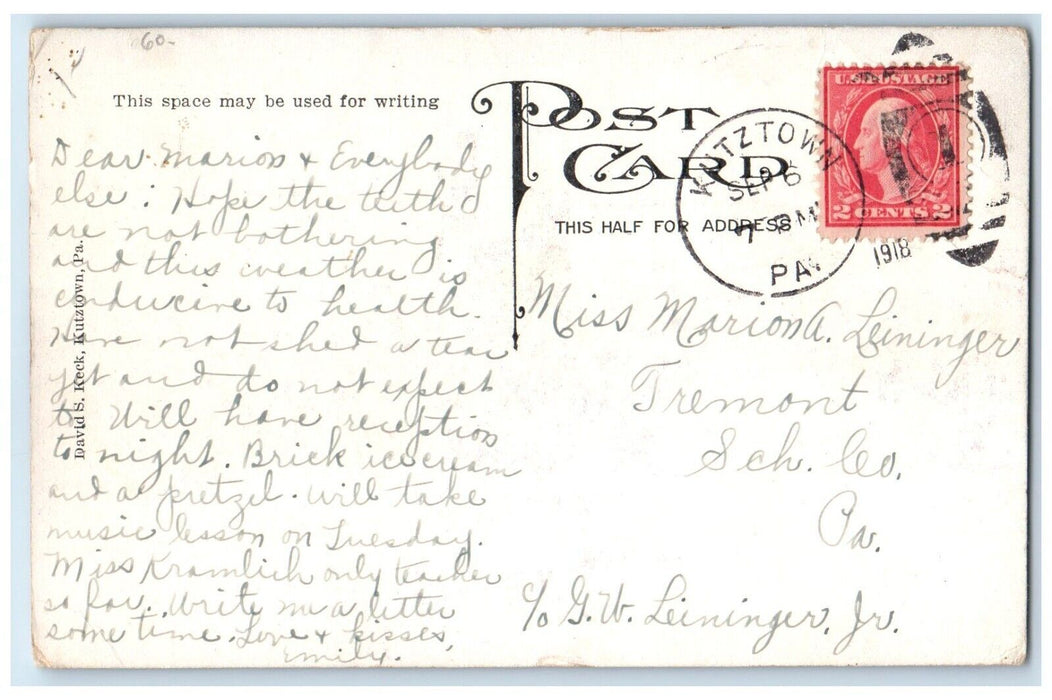 60-
This space may be used for writing
POST CARD
THIS HALF FOR ADDRESS
David S. Keck, Kutztown, Pa.
KUTZTOWN
SEP 6
7 PM
PA.
1918
U.S. POSTAGE
2 CENTS 2
1
Dear Marion & Everybody
else: Hope the teeth
are not bothering
and this weather is
conducive to health.
Have not shed a tear
yet and do not expect
to. Will have reception
to night. Brick ice cream
and a pretzel. Will take
music lesson on Tuesday.
Miss Kramlich only teacher
so far. Write me a letter
some time. Love & kisses,
Emily.
Miss Marion A. Leininger
Tremont
Sch. Co.
Pa.
c/o G. W. Leininger, Jr.